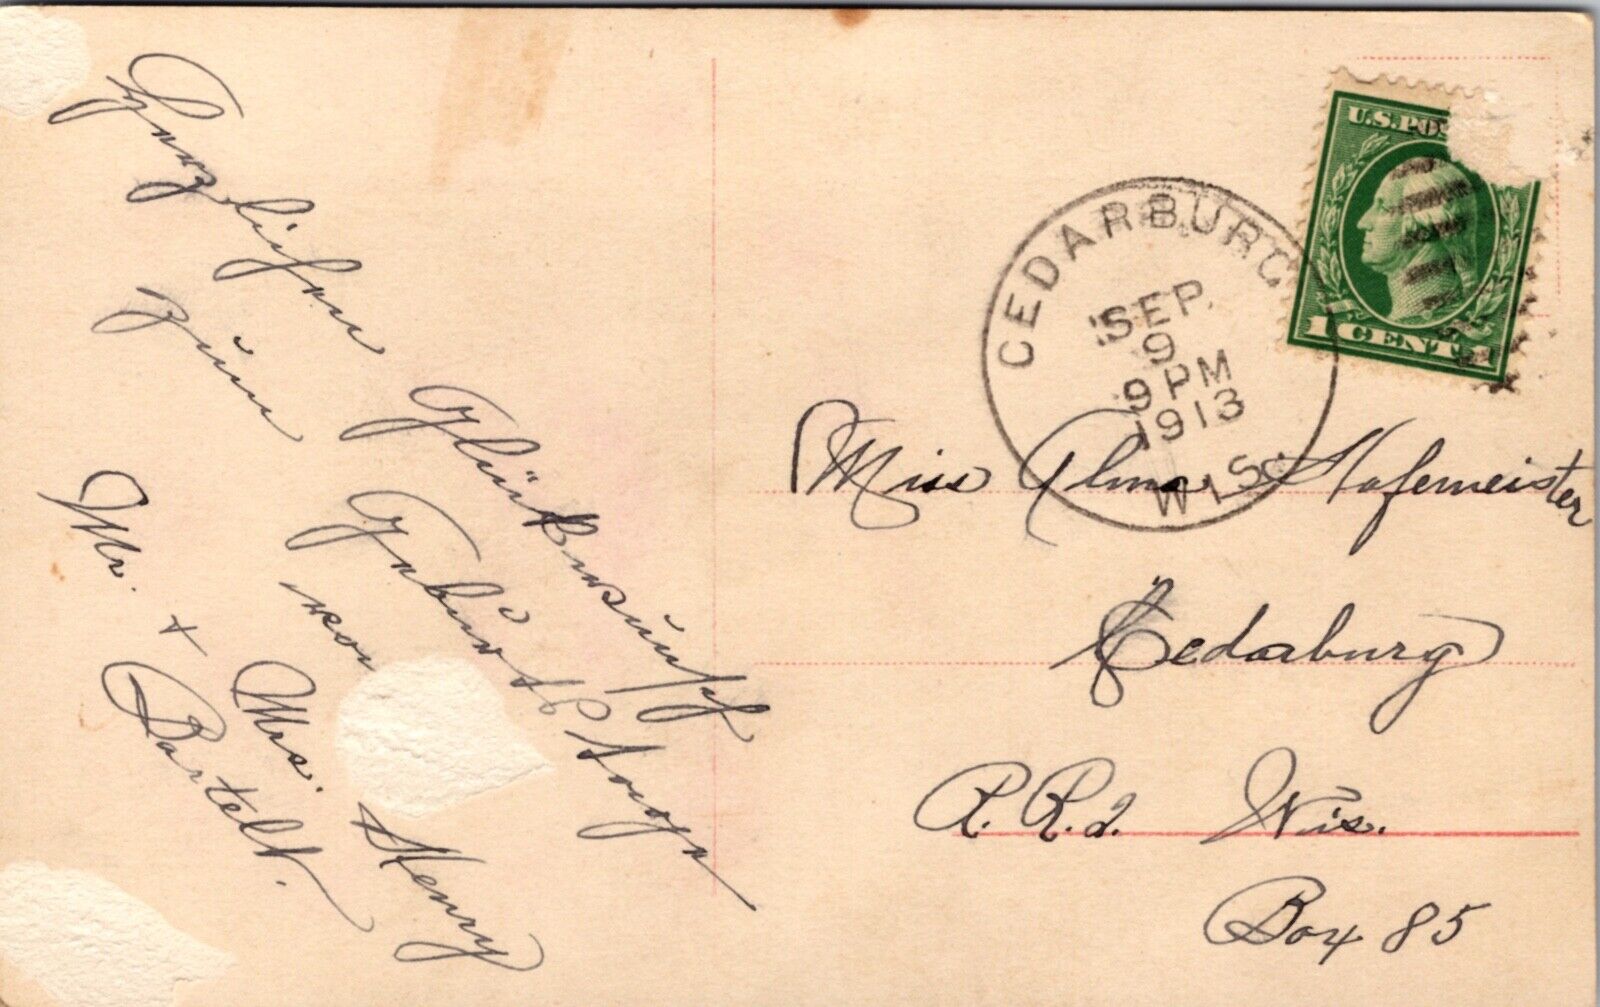 Herzlichen Glückwunsch
zum Geburtstage
von
Mr. + Mrs. Henry
Bartelt.
U.S. POS
1 CENT 1
CEDARBURG
SEP.
9
9 PM
1913
WIS.
Miss Alma Hafemeister
Cedarburg
R.R.2. Wis.
Box 85